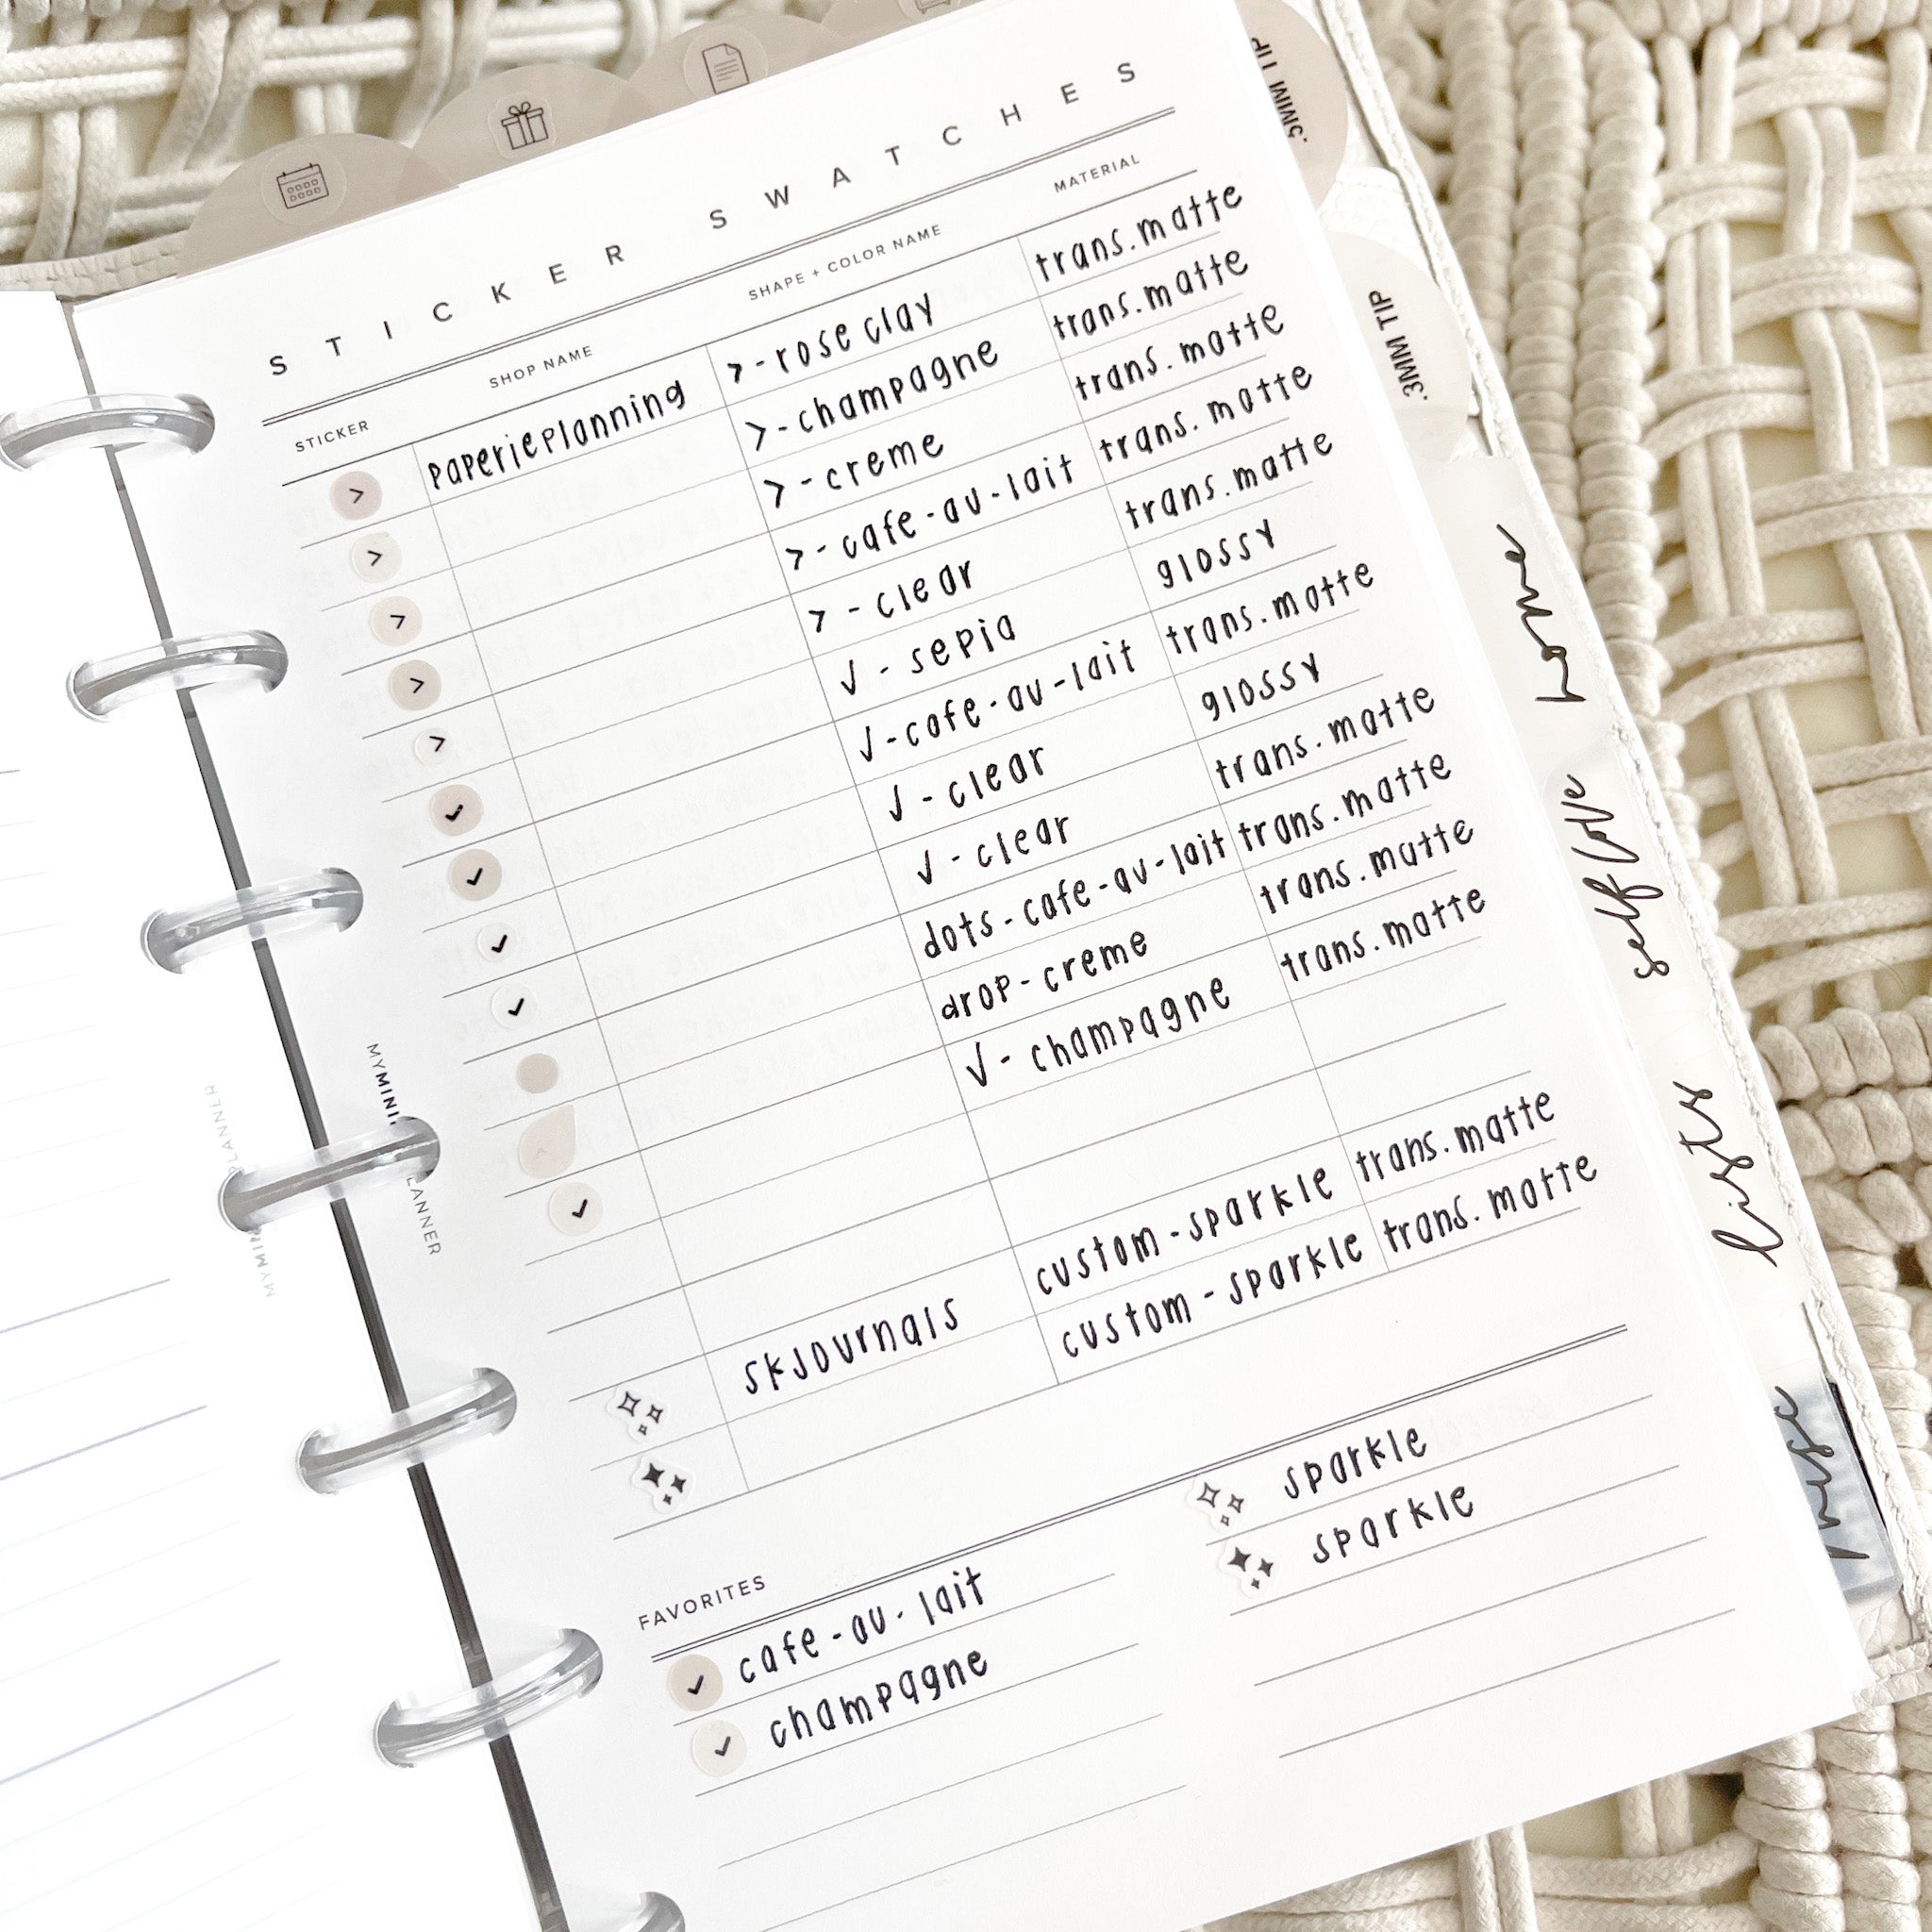 STICKER SWATCHES
STICKER SHOP NAME SHAPE + COLOR NAME MATERIAL
paperieplanning > - rose clay trans. matte
> - champagne trans. matte
> - creme trans. matte
> - cafe - au - lait trans. matte
> - clear trans. matte
✓ - sepia glossy
✓ - cafe - au - lait trans. matte
✓ - clear glossy
✓ - clear trans. matte
dots - cafe - au - lait trans. matte
drop - creme trans. matte
✓ - champagne trans. matte
skjournals custom - sparkle trans. matte
custom - sparkle trans. matte
FAVORITES
cafe - au - lait
champagne
sparkle
sparkle
.5MM TIP
.3MM TIP
home
self love
lists
misc